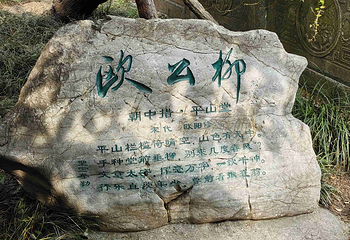 欧公柳
朝中措·平山堂
宋代 欧阳修
平山栏槛倚晴空,山色有无中。
手种堂前垂柳,别来几度春风。
文章太守,挥毫万字,一饮千钟。
行乐直须年少,尊前看取衰翁。